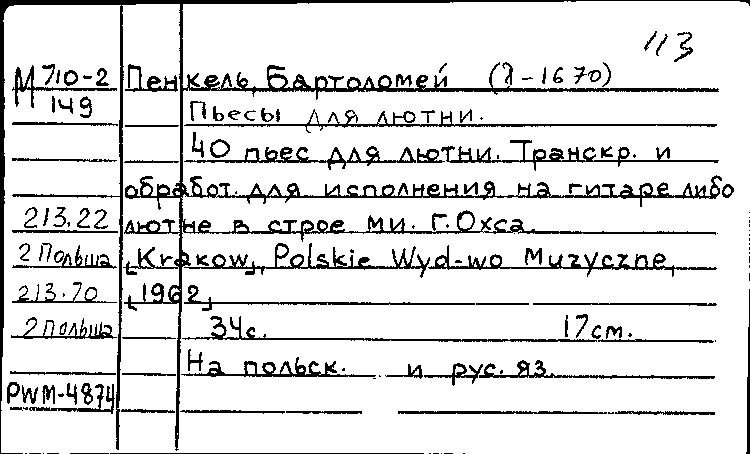 113
М 710-2 Пенкель, Бартоломей (?-1670)
149 Пьесы для лютни.
40 пьес для лютни. Транскр. и
обработ. для исполнения на гитаре либо
213.22 лютне в строе ми. Г. Охса.
2 Польша [Krakow], Polskie Wyd-wo Muzyczne,
213.70 [1962]
2 Польша 34с. 17см.
На польск. и рус. яз.
PWM-4874